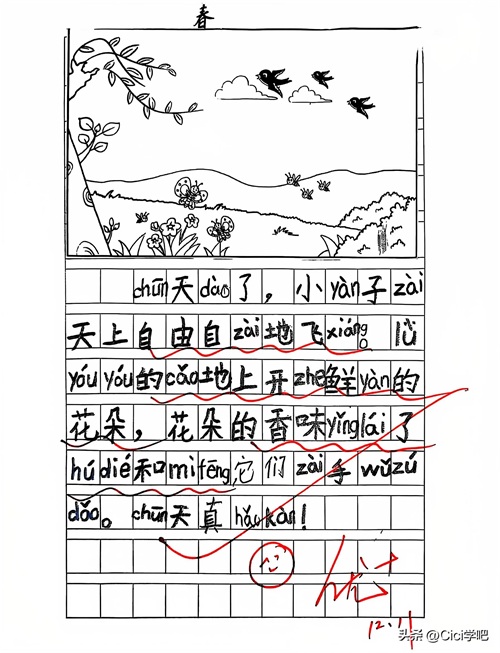 春
chūn天dào了，小yàn子zài
天上自由自zài地飞xiáng。lǜ
yóu yóu的cǎo地上开zhe鲜yàn的
花朵，花朵的香味yǐnglái了
húdié和mìfēng，它们zài手wǔzú
dǎo。chūn天真hǎokàn！
优+
12.11
头条 @Cici学吧